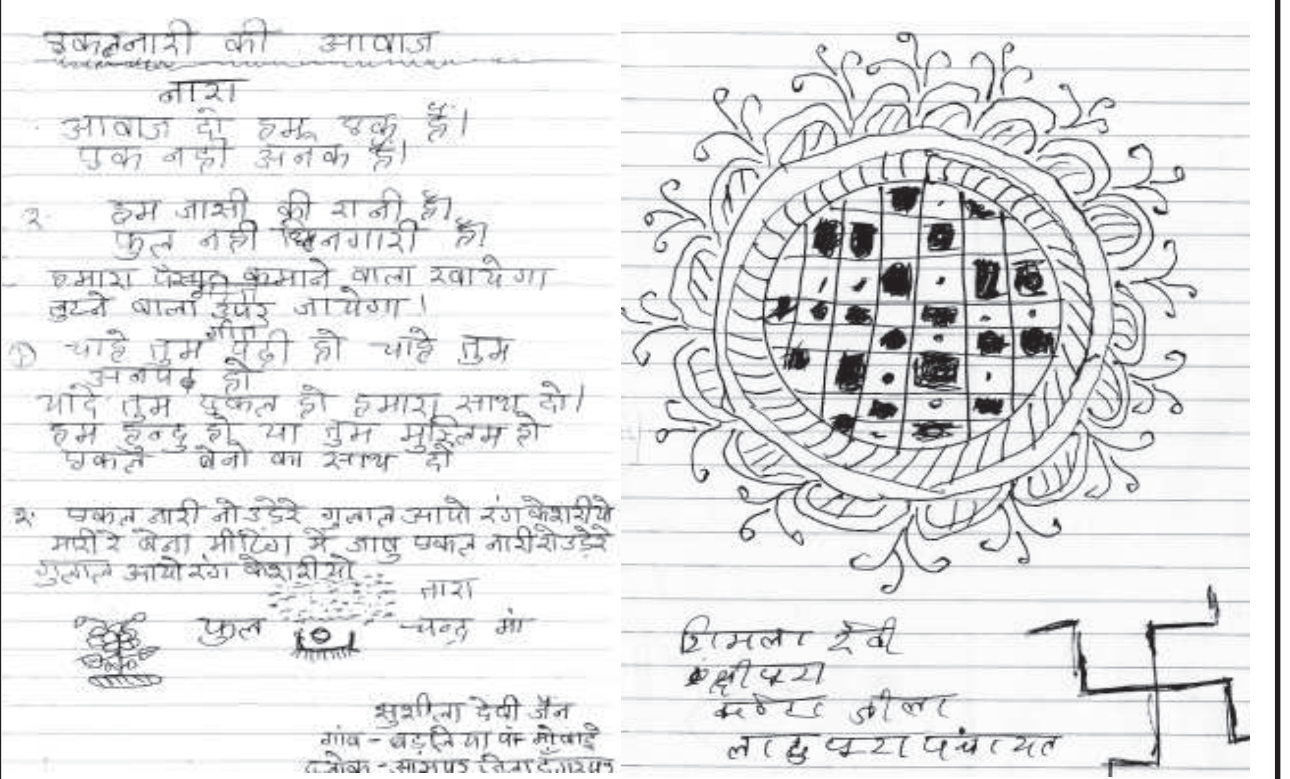 एकलनारी की आवाज
नारा
आवाज दो हम एक हैं।
एक नही अनेक है।
२. हम जासी की रानी है।
फुल नही चिनगारी है।
हमारा पैसा कमाने वाला खायेगा
लुटने वाला उपर जायेगा।
गीत
① चाहे तुम पढी हो चाहे तुम
अनपढ हो
यादे तुम एकल हो हमारा साथ दो।
हम हुन्दु हो या तुम मुस्लिम हो
एकल बेनो का साथ दो
२. एकल नारी नो उडेरे गुलाल आयो रंग केशरीयो
मारी रे बेना मीटिंग में जावु एकल नारी रो उडेरे
गुलाल आयो रंग केशरीयो
तारा
फुल
चन्द्र मां
सुशीला देवी जैन
गांव - पं
ब्लोक - आसपुर जिला डुँगरपुर
शिमला देवी
जीला
पंचायत